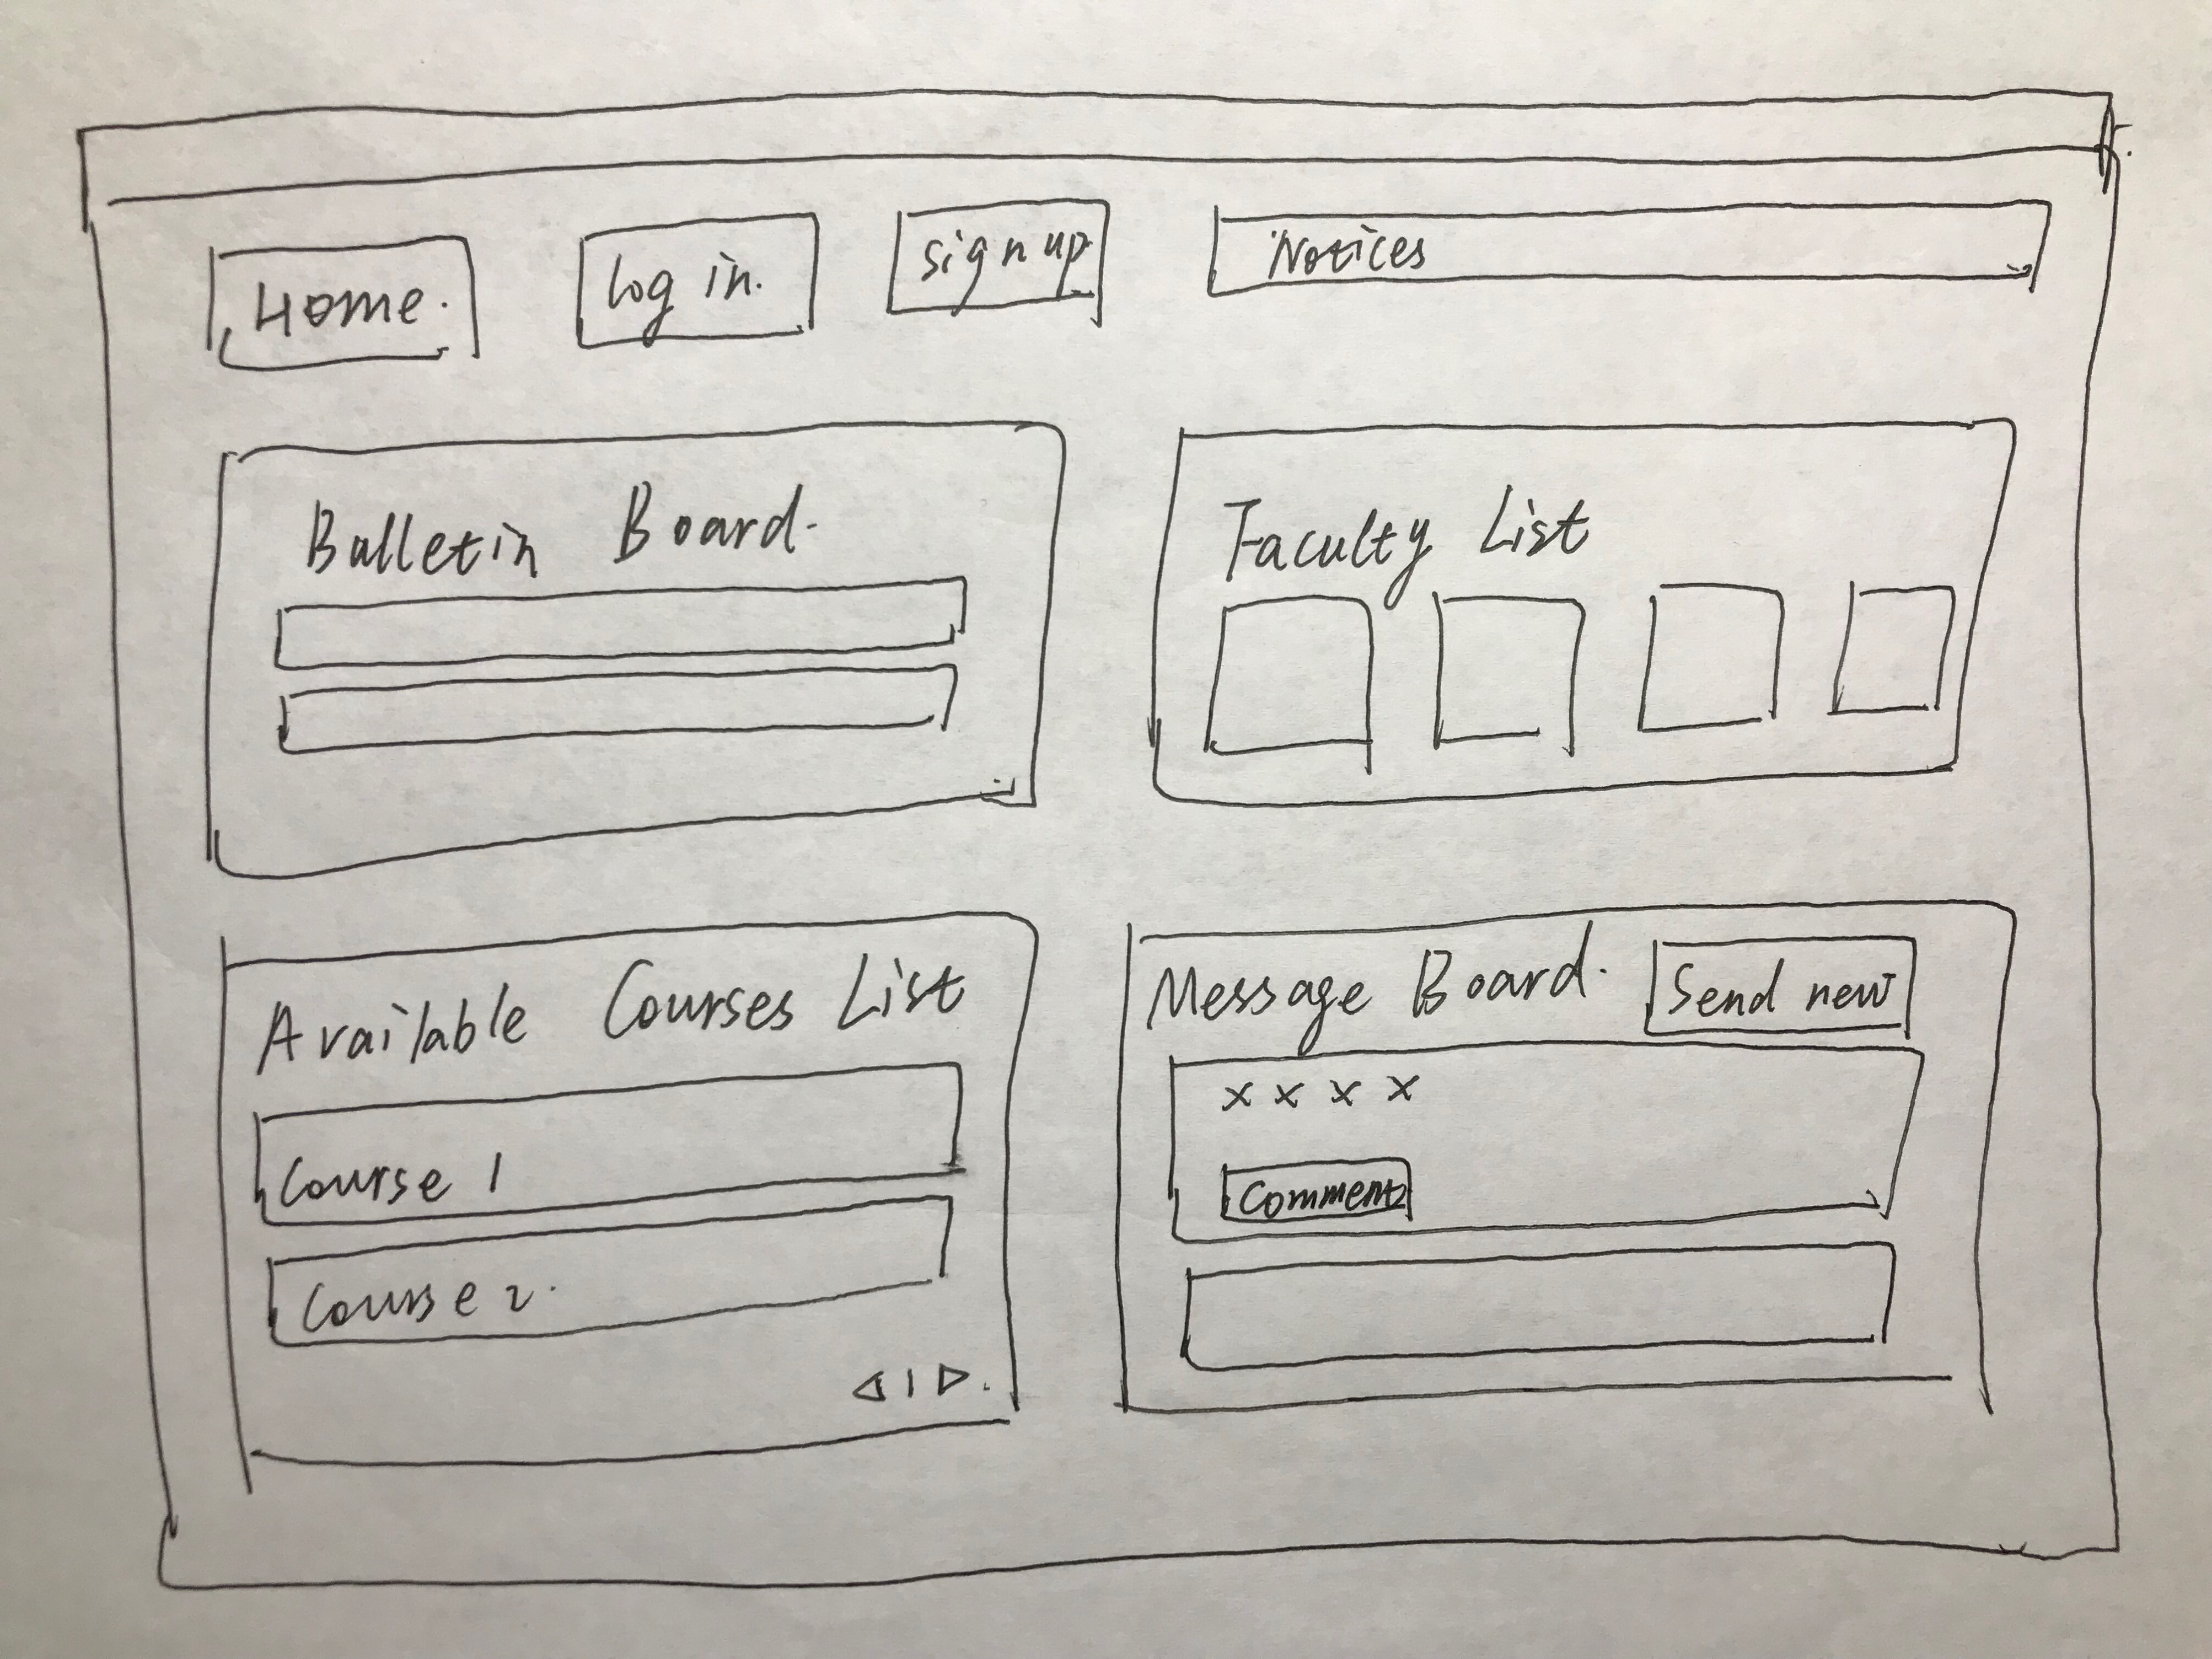 Home.
log in.
sign up
Notices
Bulletin Board.
Faculty List
Available Courses List
Course 1
Course 2.
◁ 1 ▷.
Message Board.
Send new
x x x x
Comment